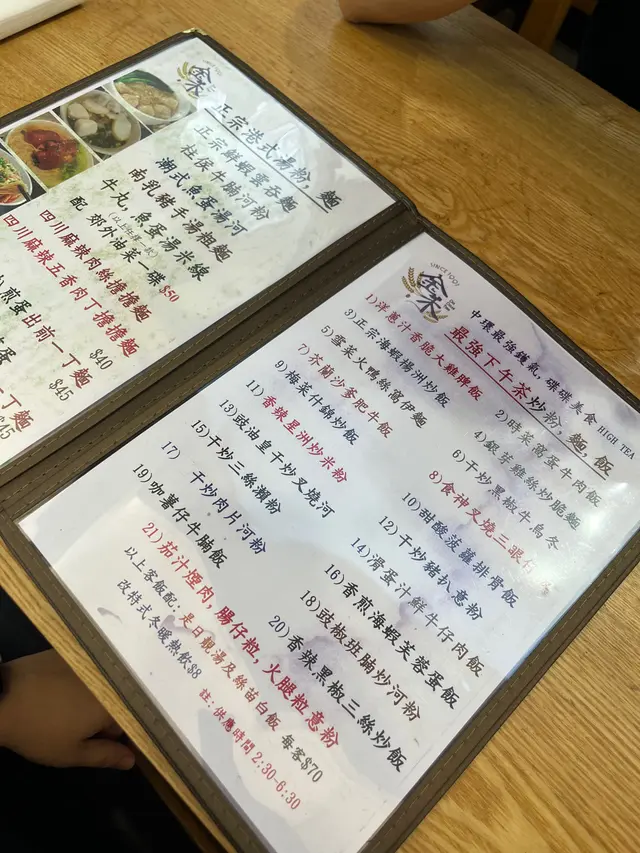 金禾
正宗港式湯粉，麵
正宗鮮蝦雲吞麵
柱侯牛腩河粉
潮式魚蛋湯河
南乳豬手湯粗麵
牛丸，魚蛋湯米線
(以上任選一款)
配 郊外油菜一碟 $50
四川麻辣肉絲擔擔麵
四川麻辣五香肉丁擔擔麵
煎蛋出前一丁麵 $40
$45
丁麵
$45
SINCE 1991
金禾
中環最強鑊氣，碟碟美食 HIGH TEA
最強下午茶炒粉，麵，飯
1)洋蔥汁香脆大雞脾飯
2)時菜窩蛋牛肉飯
3)正宗海蝦揚洲炒飯
4)銀芽雞絲炒脆麵
5)雪菜火鴨絲窩伊麵
6)干炒黑椒牛烏冬
7)芥蘭沙爹肥牛飯
8)食神叉燒三眼
9)梅菜什錦炒飯
10)甜酸菠蘿排骨飯
11)香辣星洲炒米粉
12)干炒豬扒意粉
13)豉油皇干炒叉燒河
14)滑蛋汁鮮牛仔肉飯
15)干炒三絲瀨粉
16)香煎海蝦芙蓉蛋飯
17) 干炒肉片河粉
18)豉椒斑腩炒河粉
19)咖薯仔牛腩飯
20)香辣黑椒三絲炒飯
21)茄汁煙肉，腸仔粒，火腿粒意粉
以上客飯配：是日靚湯及絲苗白飯 每客$70
改特式冬暖熱飲$8
註：供應時間2:30-6:30